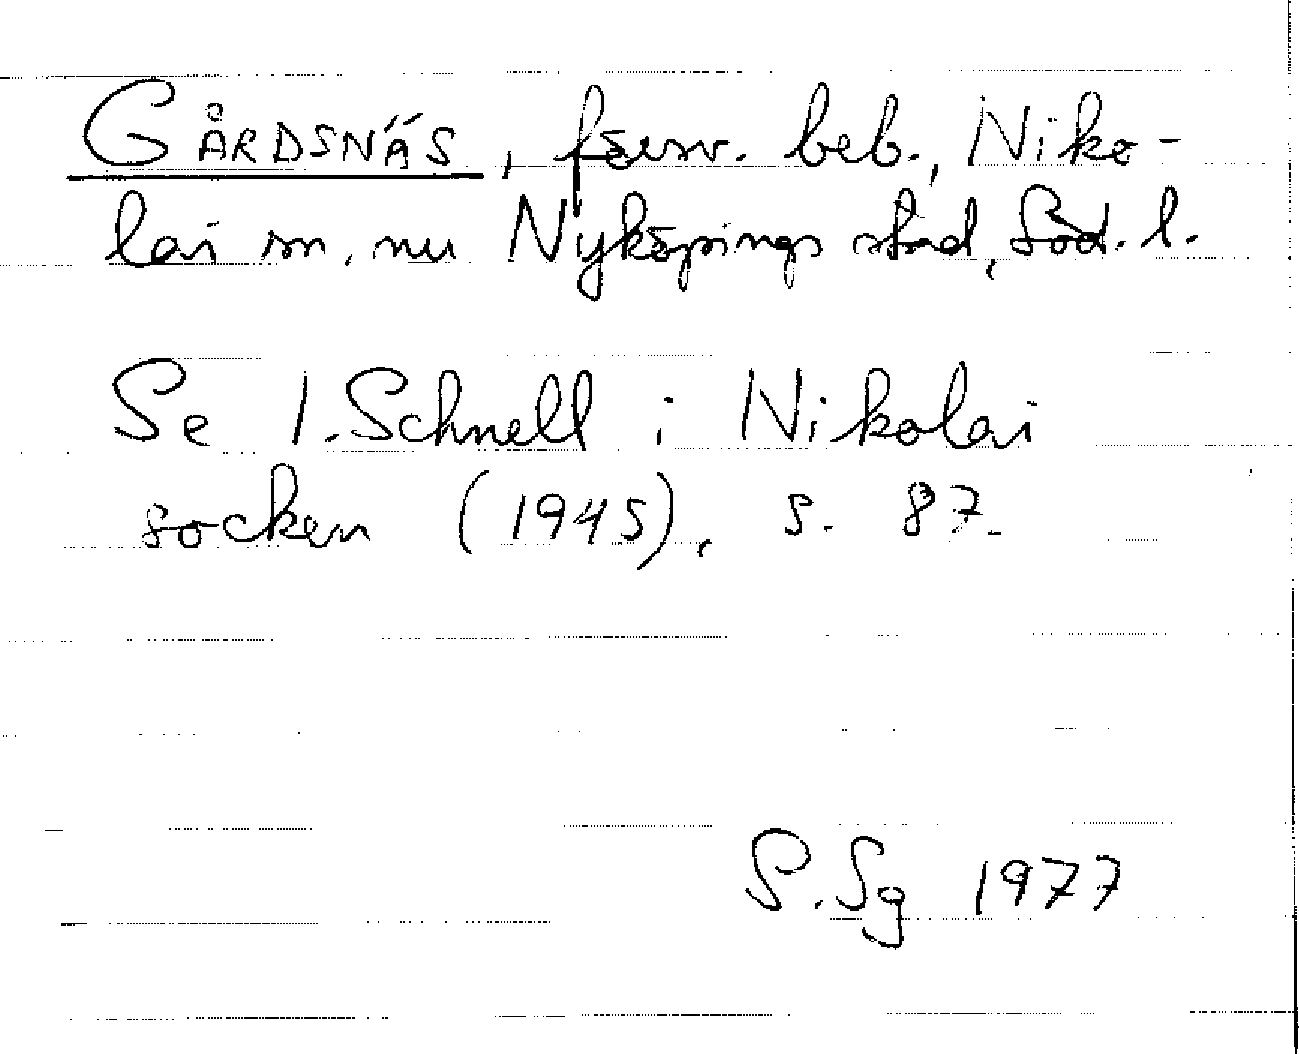 GÅRDSNÄS, försv. beb., Niko-
lai sn, nu Nyköpings stad, Söd. l.
Se I. Schnell i Nikolai
socken (1945), s. 87.
S. Sg 1977